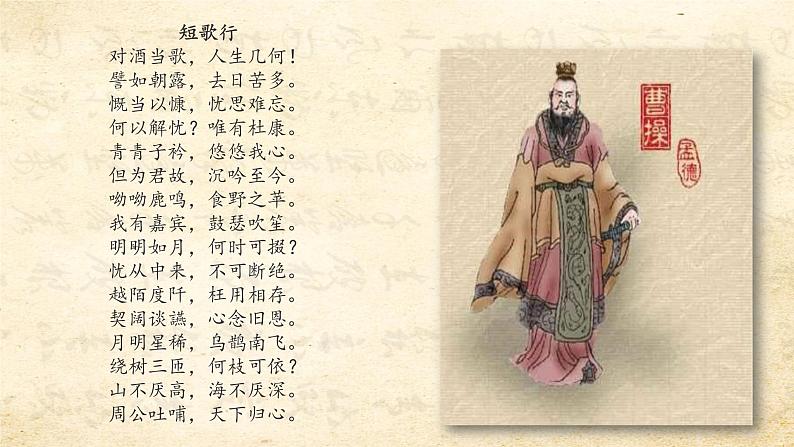 短歌行
对酒当歌，人生几何！
譬如朝露，去日苦多。
慨当以慷，忧思难忘。
何以解忧？唯有杜康。
青青子衿，悠悠我心。
但为君故，沉吟至今。
呦呦鹿鸣，食野之苹。
我有嘉宾，鼓瑟吹笙。
明明如月，何时可掇？
忧从中来，不可断绝。
越陌度阡，枉用相存。
契阔谈讌，心念旧恩。
月明星稀，乌鹊南飞。
绕树三匝，何枝可依？
山不厌高，海不厌深。
周公吐哺，天下归心。
曹操
孟德